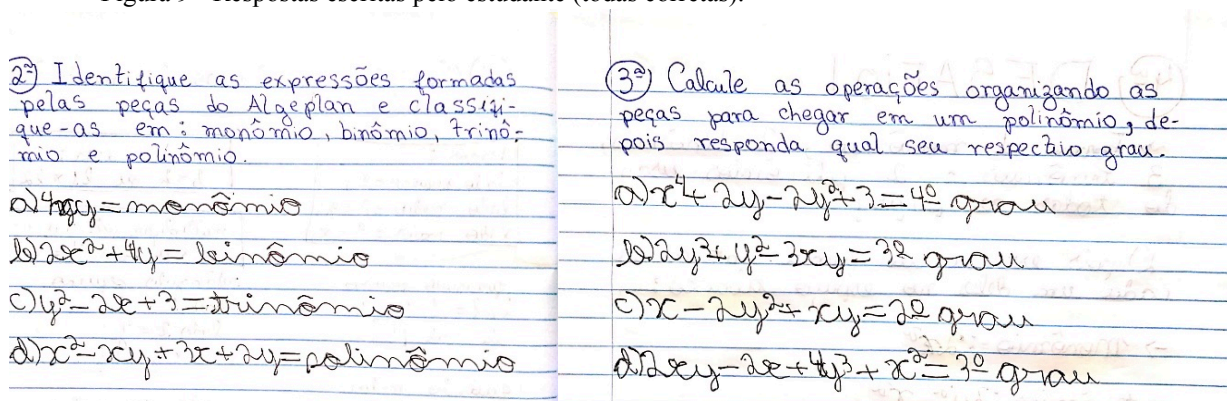 Figura 9 - Respostas escritas pelo estudante (todas corretas).
2ª) Identifique as expressões formadas
pelas peças do Algeplan e classifi-
que-as em: monômio, binômio, trinô-
mio e polinômio.
a) 4xy = monômio
b) 2x² + 4y = binômio
c) y² - 2x + 3 = trinômio
d) x² - xy + 3x + 2y = polinômio
3ª) Calcule as operações organizando as
peças para chegar em um polinômio, de-
pois responda qual seu respectivo grau.
a) x⁴ + 2y - 2y² + 3 = 4º grau
b) 2y³ + y² - 3xy = 3º grau
c) x - 2y² + xy = 2º grau
d) 2xy - 2x + 4y³ + x² = 3º grau